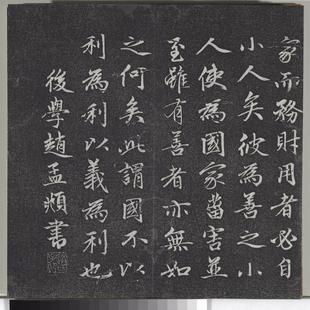 家而務財用者必自
小人矣彼為善之小
人使為國家菑害並
至雖有善者亦無如
之何矣此謂國不以
利為利以義為利也
後學趙孟頫書